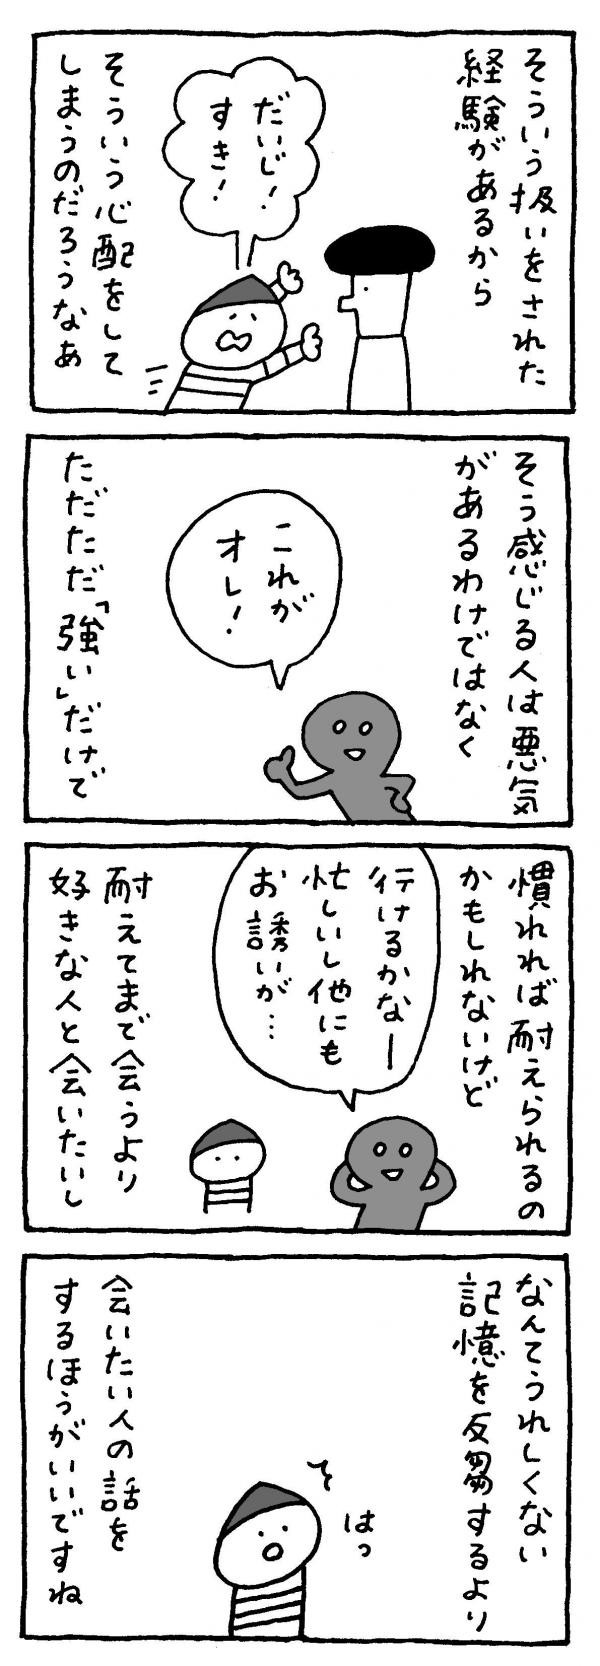 そういう扱いをされた
経験があるから
だいじ！
すき！
そういう心配をして
しまうのだろうなあ
そう感じる人は悪気
があるわけではなく
これが
オレ！
ただただ「強い」だけで
慣れれば耐えられるの
かもしれないけど
行けるかなー
忙しいし他にも
お誘いが…
耐えてまで会うより
好きな人と会いたいし
なんてうれしくない
記憶を反芻するより
はっ
会いたい人の話を
するほうがいいですね